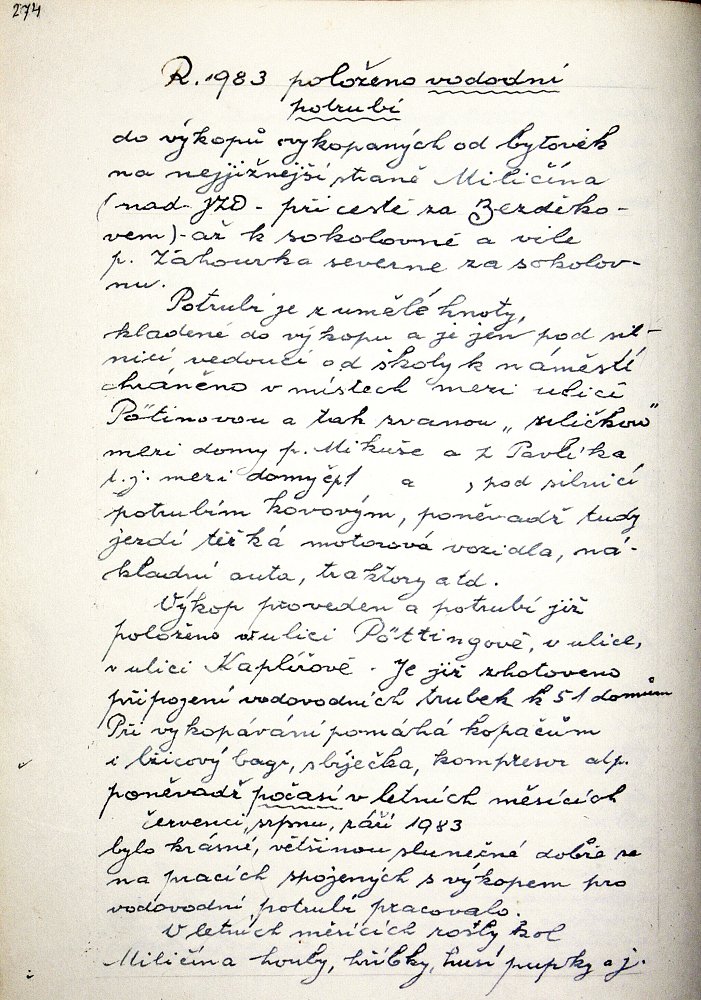 274
R. 1983 položeno vododní
potrubí
do výkopů vykopaných od bytovek
na nejjižnější straně Miličína
(nad JZD - při cestě za Bezděko-
vem) - až k sokolovně a vile
p. Záhourka severně za sokolov-
nu.
Potrubí je z umělé hmoty,
kladené do výkopu a je jen pod sil-
nicí vedoucí od školy k náměstí
chráněno v místech mezi ulicí
Pötinovou a tak zvanou „uličkou"
mezi domy p. Mikuše a z Pavlíka
t.j. mezi domy čp/ a , pod silnicí
potrubím kovovým, poněvadž tudy
jezdí těžká motorová vozidla, ná-
kladní auta, traktory atd.
Výkop proveden a potrubí již
položeno v ulici Pöttingově, v ulice,
v ulici Kaplířově. Je již zhotoveno
připojení vodovodních trubek k 51 domům
Při vykopávání pomáhá kopačům
i lžícový bagr, sbíječka, kompresor atp.
poněvadž počasí v letních měsících
červenci, srpnu, září 1983
bylo krásné, většinou slunečné dobře se
na pracích spojených s výkopem pro
vodovodní potrubí pracovalo.
V letních měsících rostly kol
Miličína houby, hříbky, husí pupky a j.